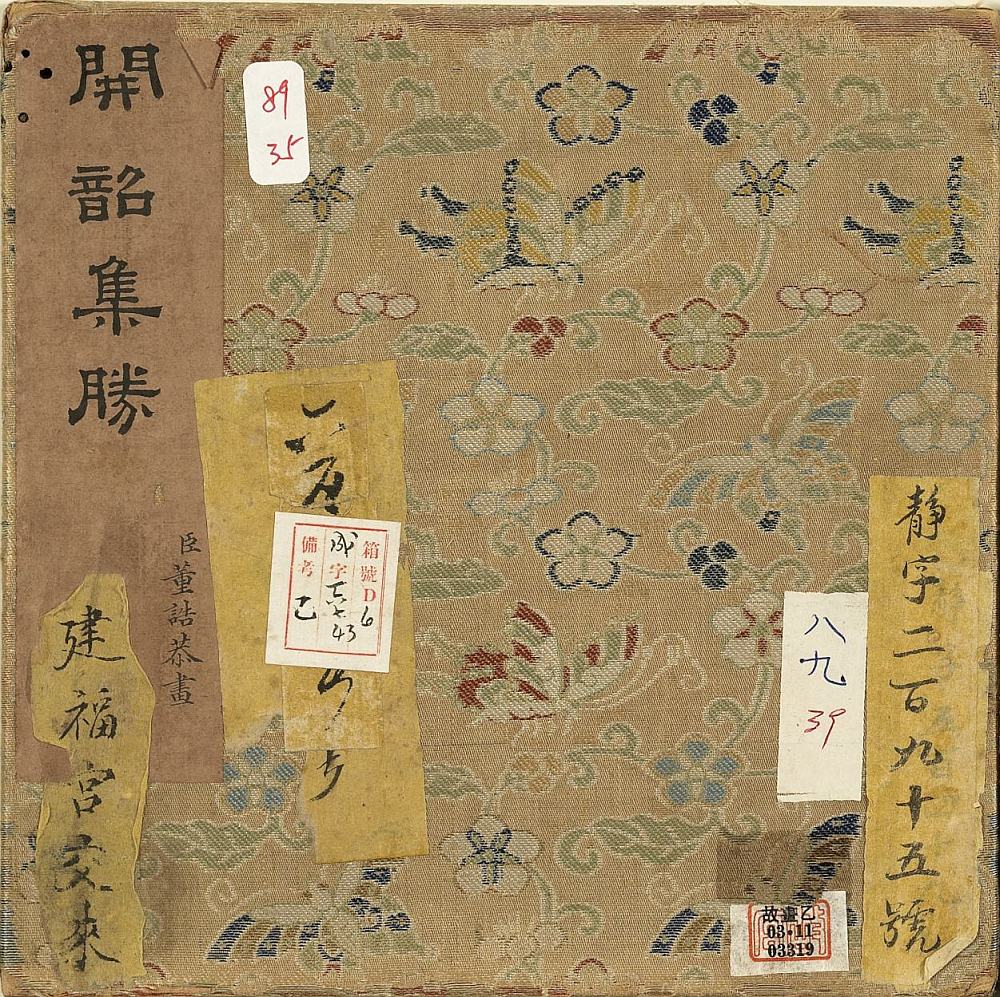 開韶集勝
臣董誥恭畫
建福宮交來
89
35
箱號D6
成字
43
備考乙
八九
39
靜字二百九十五號
故畫乙
03-11
03319